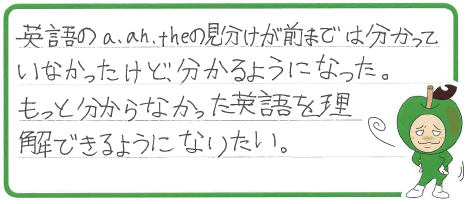 英語のa.an.theの見分けが前までは分かって
いなかったけど、分かるようになった。
もっと分からなかった英語を理
解できるようになりたい。